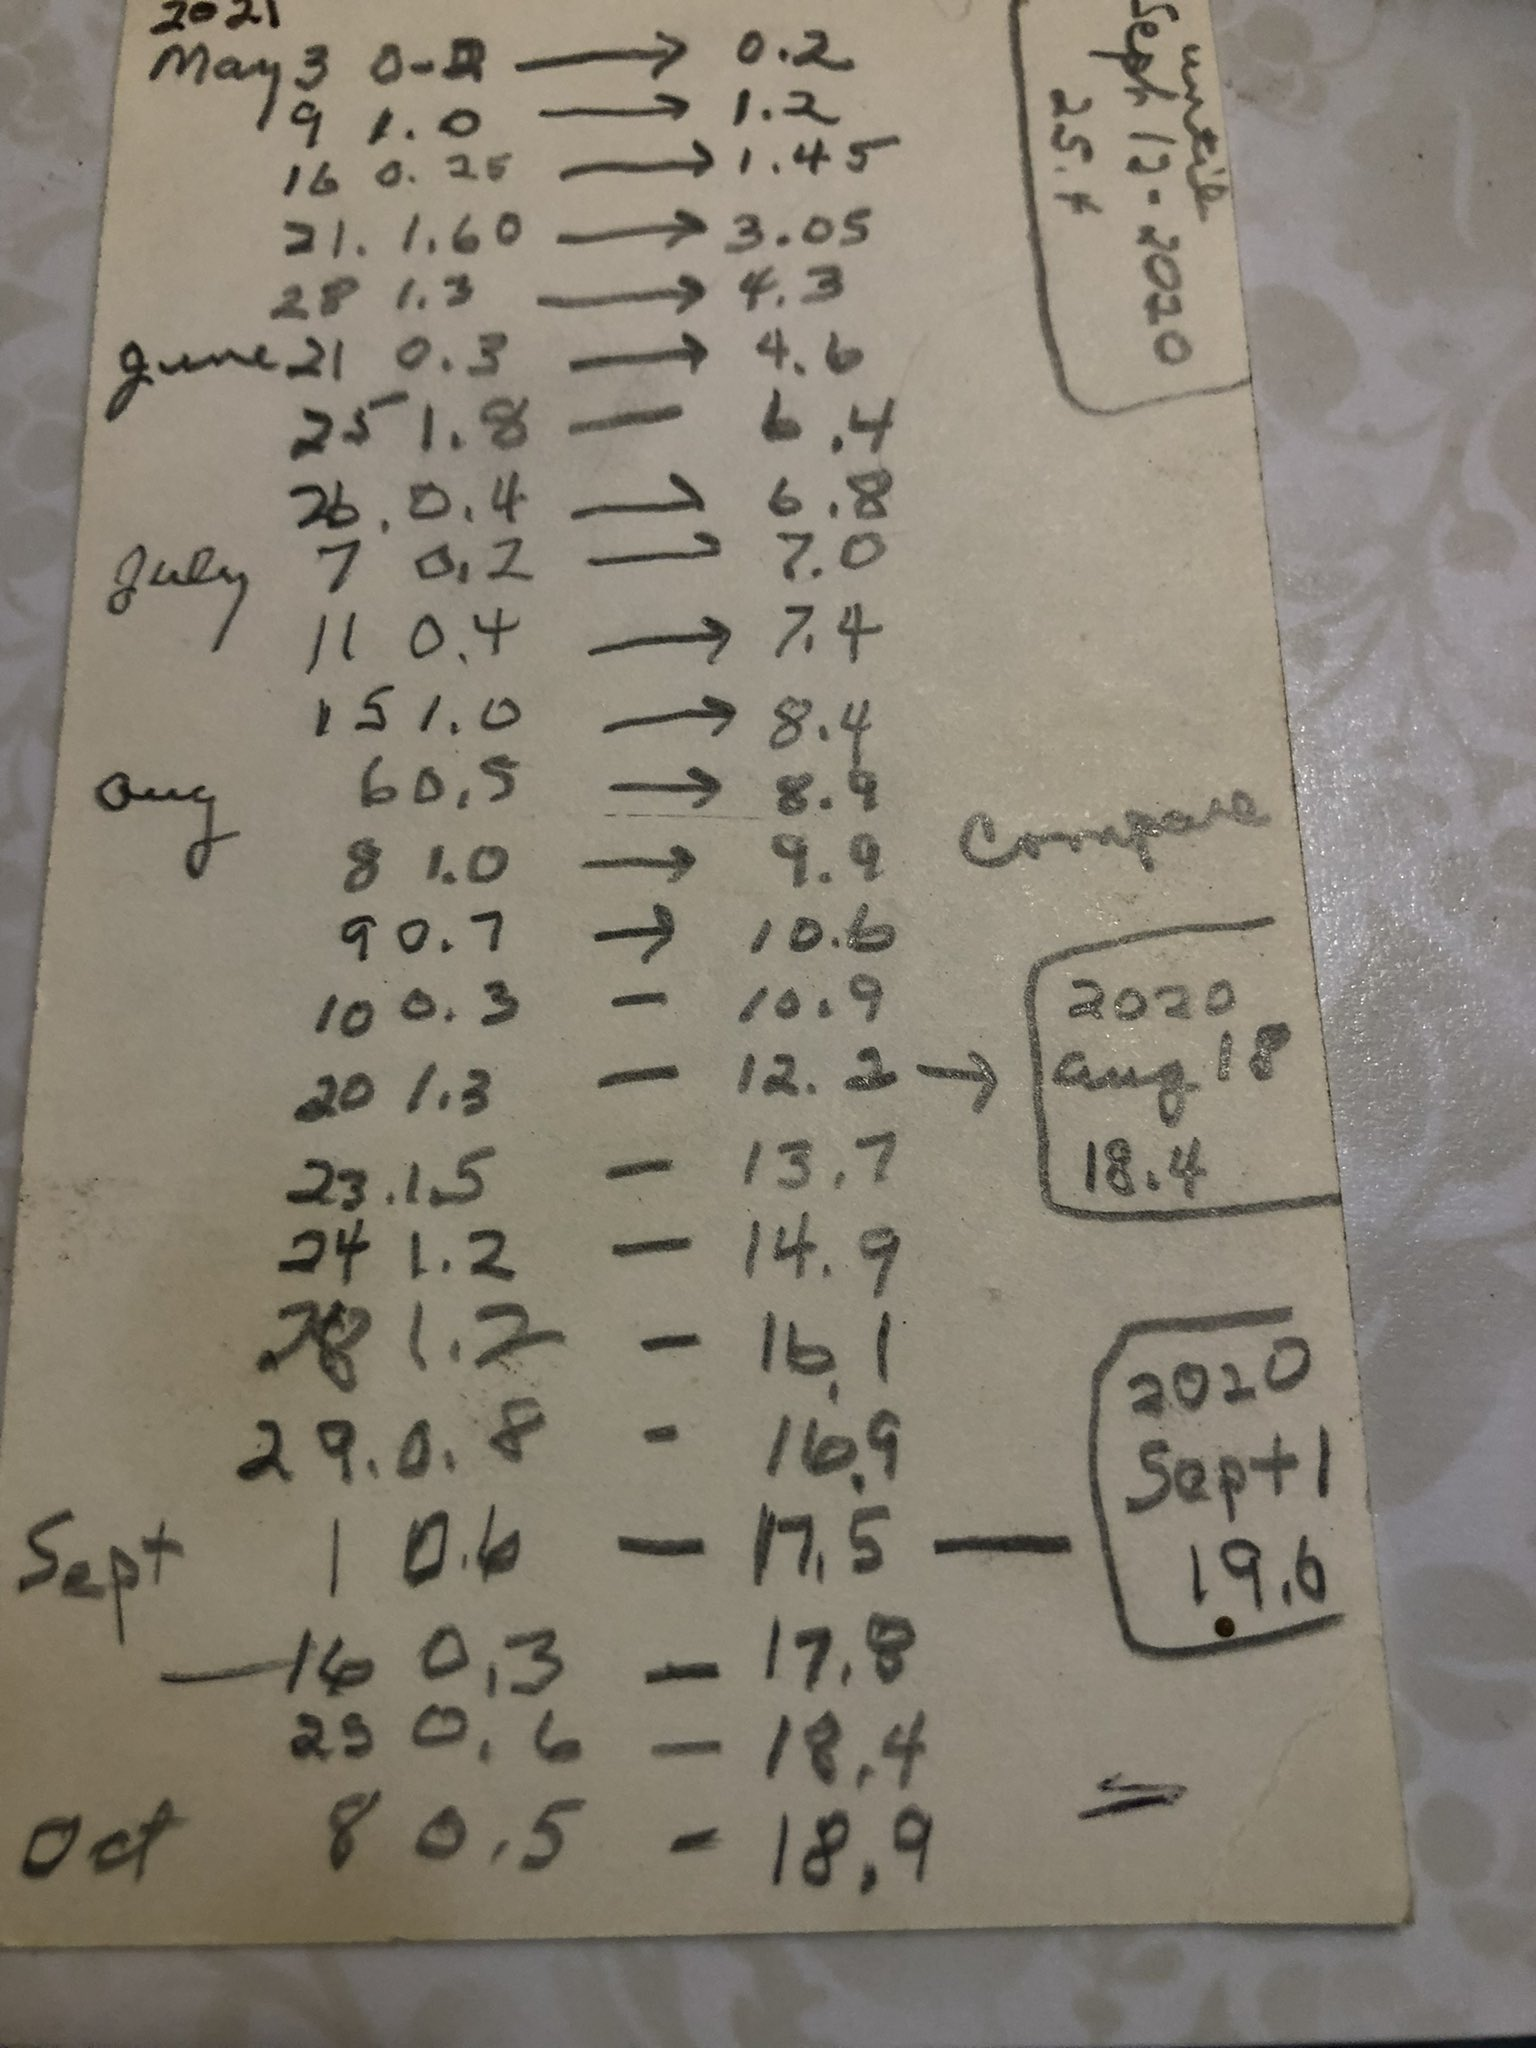 2021
May 3 0.2 → 0.2
9 1.0 → 1.2
16 0.25 → 1.45
21. 1.60 → 3.05
28 1.3 → 4.3
June 21 0.3 → 4.6
25 1.8 — 6.4
26. 0.4 → 6.8
July 7 0.2 → 7.0
11 0.4 → 7.4
15 1.0 → 8.4
Aug 6 0.5 → 8.9
8 1.0 → 9.9
9 0.7 → 10.6
10 0.3 - 10.9
20 1.3 - 12.2 →
23. 1.5 - 13.7
24 1.2 - 14.9
28 1.2 - 16.1
29. 0.8 - 16.9
Sept 1 0.6 - 17.5 —
— 16 0.3 - 17.8
23 0.6 - 18.4
Oct 8 0.5 - 18.9
until
Sept 12-2020
25.4
Compare
2020
Aug 18
18.4
2020
Sept 1
19.6